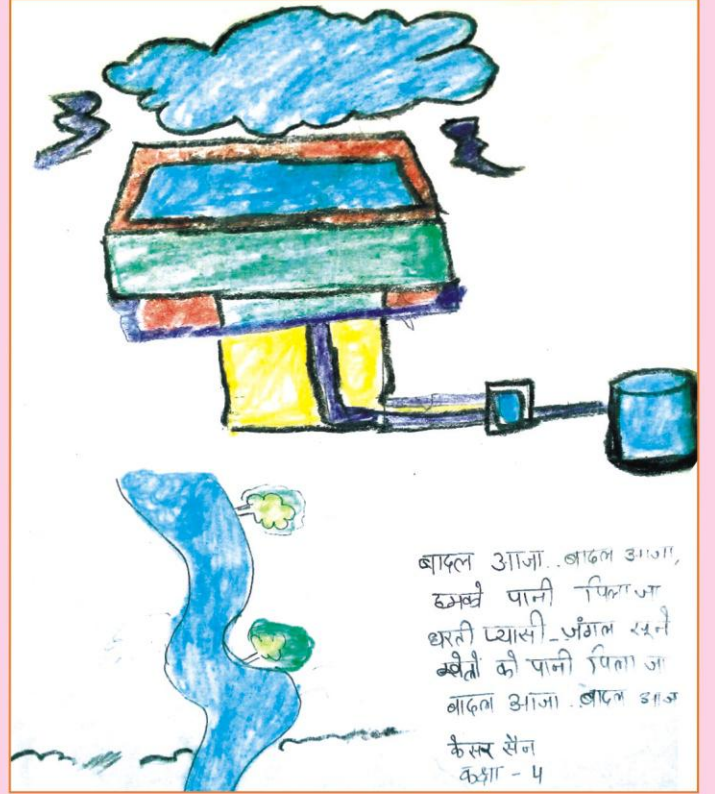 बादल आजा..बादल आजा,
हमको पानी पिला जा
धरती प्यासी-जंगल सूने
खेतों को पानी पिला जा
बादल आजा..बादल आजा
केसर सैन
कक्षा - 4